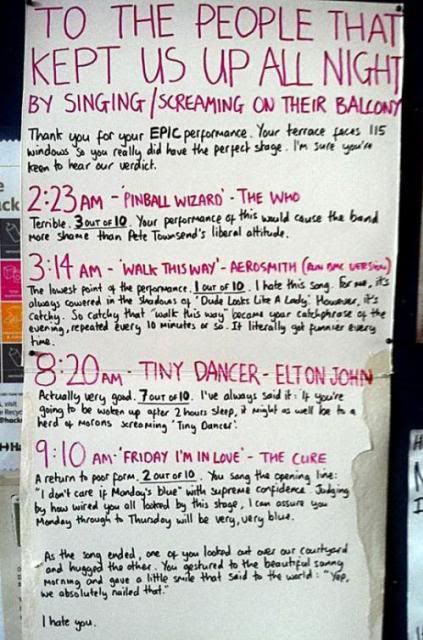 TO THE PEOPLE THAT
KEPT US UP ALL NIGHT
BY SINGING/SCREAMING ON THEIR BALCONY
Thank you for your EPIC performance. Your terrace faces 115
windows so you really did have the perfect stage. I'm sure you're
keen to hear our verdict.
2:23 AM - 'PINBALL WIZARD' - THE WHO
Terrible. 3 out of 10. Your performance of this would cause the band
more shame than Pete Townsend's liberal attitude.
3:14 AM - 'WALK THIS WAY' - AEROSMITH (RUN DMC VERSION)
The lowest point of the performance. 1 out of 10. I hate this song. For me, it's
always cowered in the shadows of 'Dude Looks Like A Lady'. However, it's
catchy. So catchy that "walk this way" became your catchphrase of the
evening, repeated every 10 minutes or so. It literally got funnier every
time.
8:20 AM - TINY DANCER - ELTON JOHN
Actually very good. 7 out of 10. I've always said it: If you're
going to be woken up after 2 hours sleep, it might as well be to a
herd of morons screaming 'Tiny Dancer'.
9:10 AM - 'FRIDAY I'M IN LOVE' - THE CURE
A return to poor form. 2 out of 10. You sang the opening line:
"I don't care if Monday's blue" with supreme confidence. Judging
by how wired you all looked by this stage, I can assure you
Monday through to Thursday will be very, very blue.
As the song ended, one of you looked out over our courtyard
and hugged the other. You gestured to the beautiful sunny
morning and gave a little smile that said to the world: "Yep,
we absolutely nailed that."
I hate you.